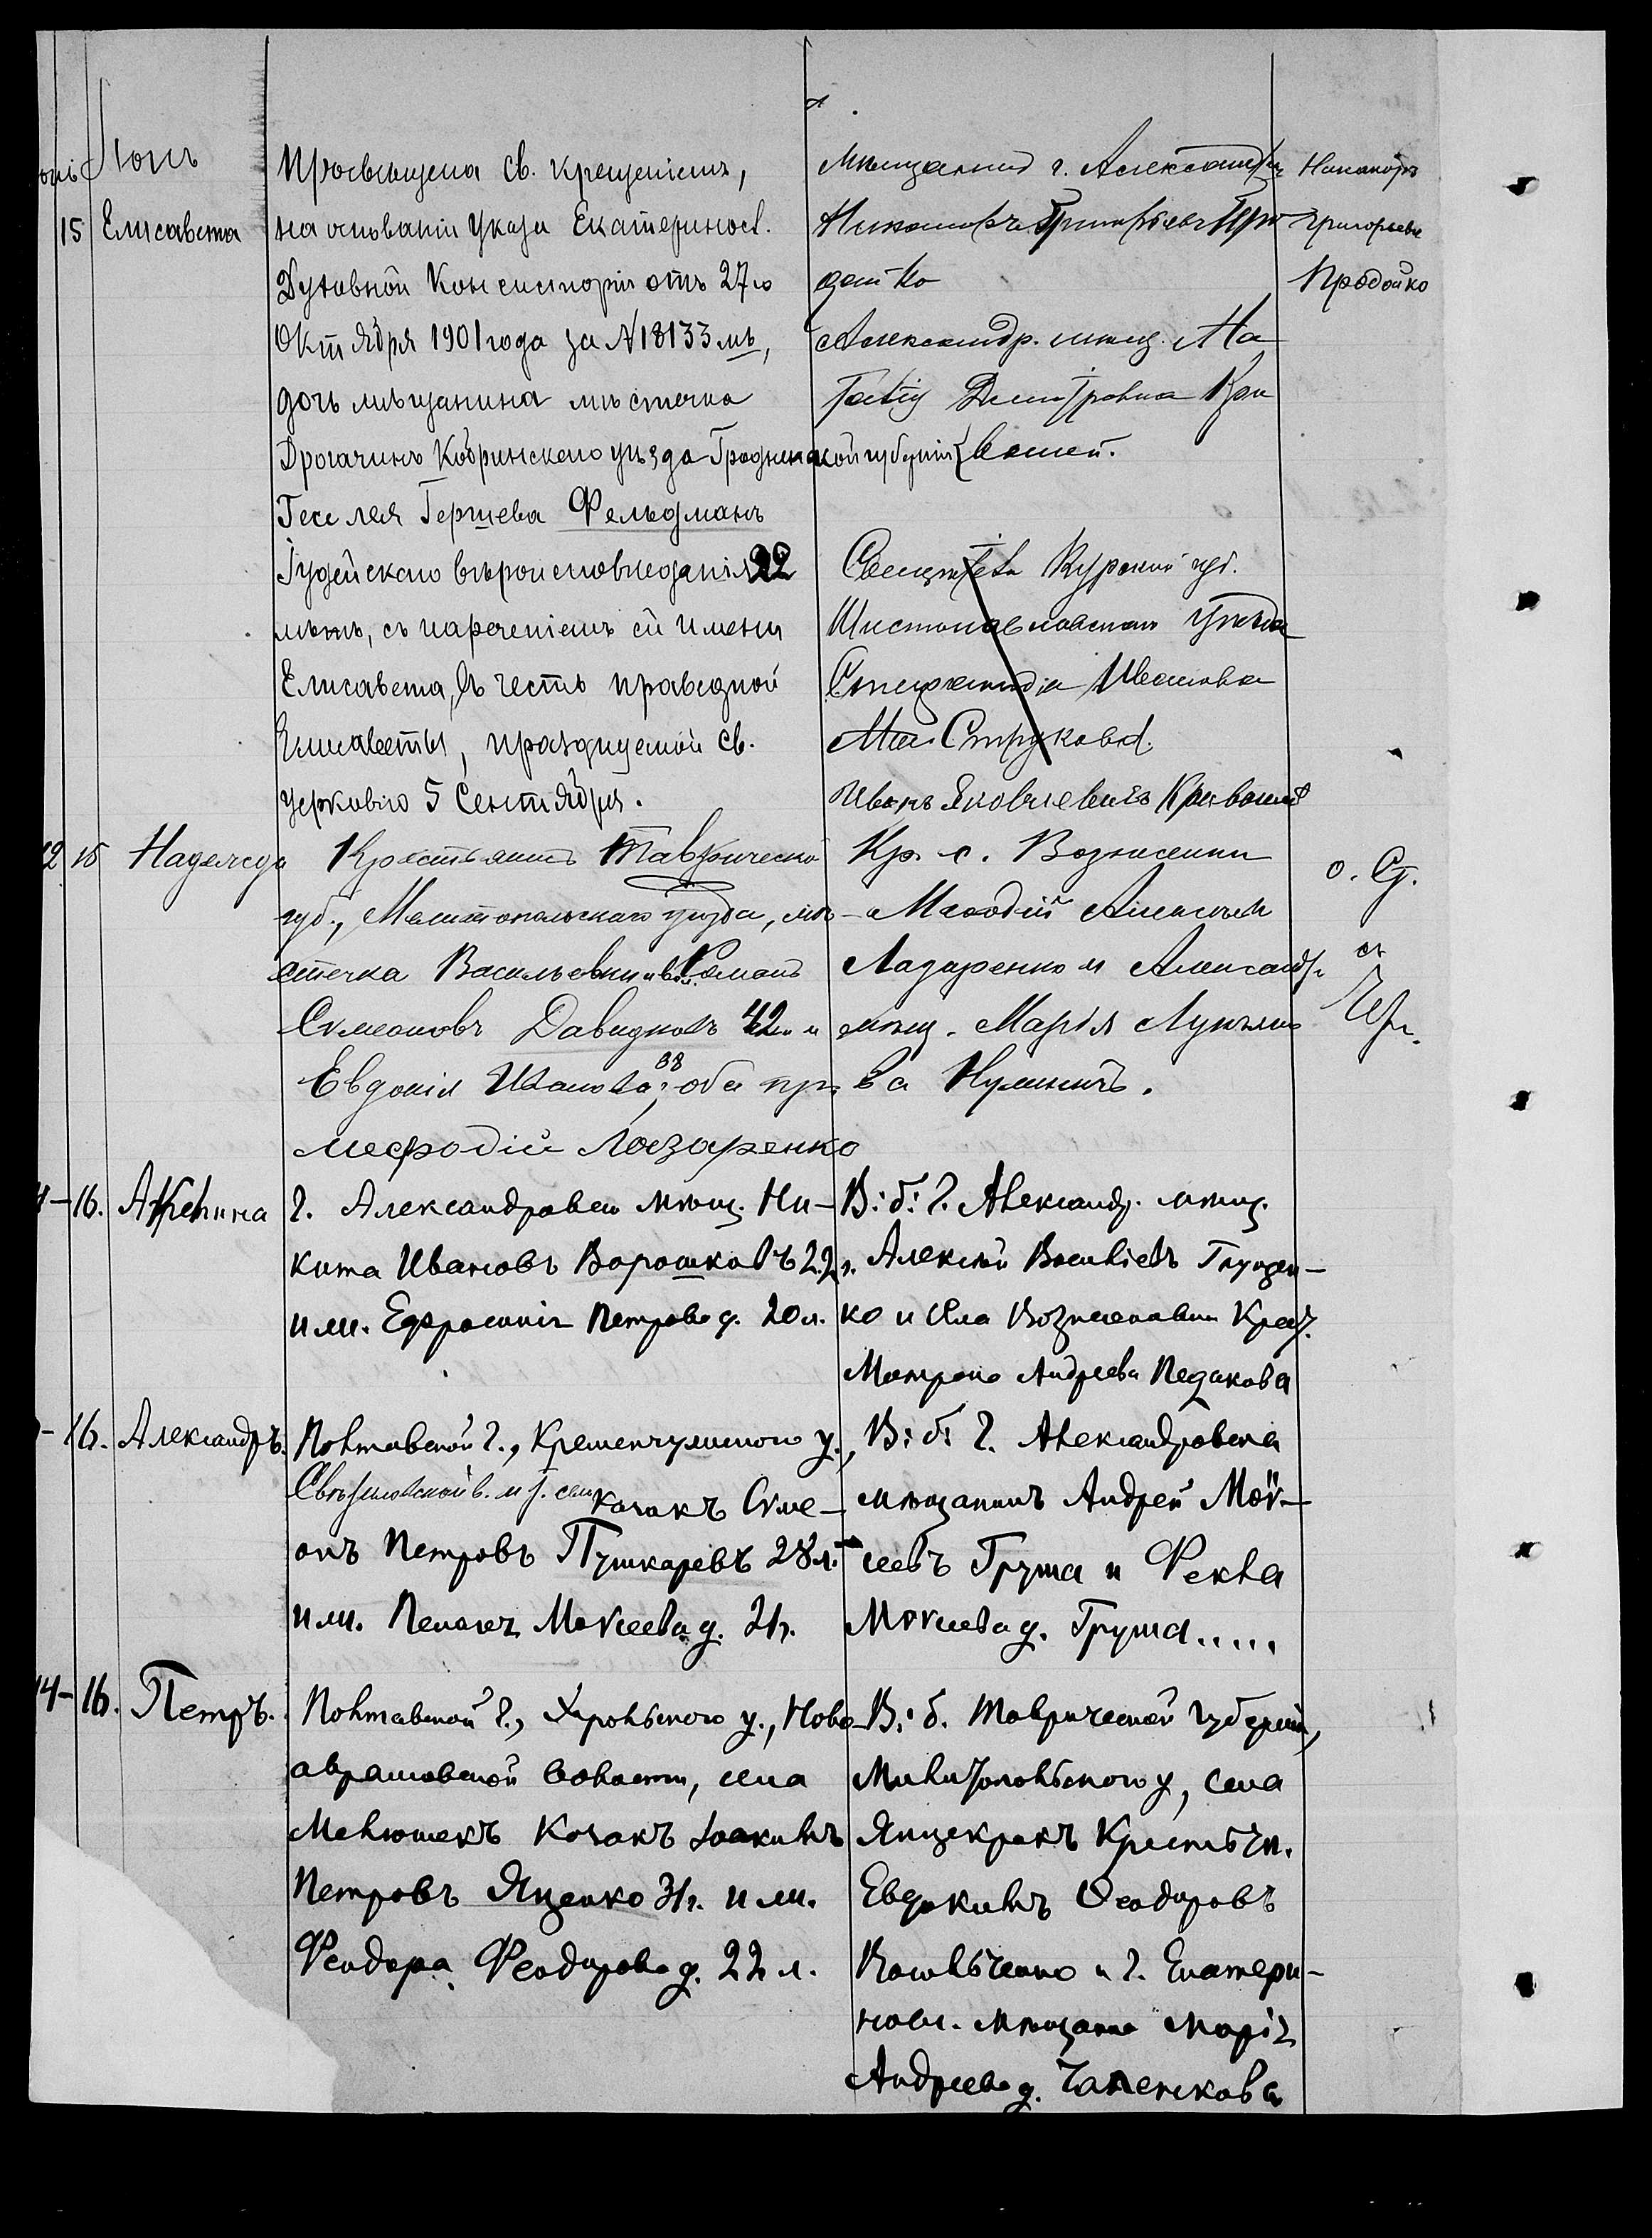 15 Елисавета
Просвѣщена св. крещеніемъ,
на основаніи указа Екатериносл.
Духовной Консисторіи отъ 27го
Октября 1901 года за №18133 мъ,
дочь мѣщанина мѣстечка
Дрогачинъ Кобринскаго уѣзда Гродненской губерніи
Геселея Гершева Фельдманъ
Іудейскаго вѣроисповѣданія 22
лѣтъ, съ нареченіемъ ей имени
Елисавета, въ честь праведной
Елисаветы, празднуемой св.
церковію 5 Сентября.
Мѣщанинъ г. Александр.
Никаноръ Григорьевъ Про
дайко
Александр. мѣщ. На
талія Димитріевна Кри
вошей.
Курской губ.
уѣзда
Ивановна
Струкова.
Иванъ Яковлевичъ Кривошей
Никаноръ
Григорьевъ
Продойко
15 Надежда
Крестьянинъ Таврической
губ., Мелитопольскаго уѣзда, мѣ-
стечка Васильевки Романъ
Симеоновъ Давидковъ 42 и
Евдокія Иванова 38 оба пр.
Мефодій Лазаренко
Кр. с. Вознесенки
Меѳодій Алексѣевъ
Лазаренко и Александр.
мѣщ. Марія Лукьяно
ва
16. Акилина
г. Александровска мѣщ. Ни-
кита Ивановъ Ворошковъ 22 л.
и ж. Ефросинія Петрова д. 20 л.
В: б: г. Александр. мѣщ.
Алексѣй Васильевъ
ко и села Вознесеновки Крест.
Матрона Андреева Педакова
16. Александръ.
Полтавской г., Кременчугскаго у.,
козакъ Симе-
онъ Петровъ Пушкаревъ 28 л.
и ж. Пелагія Моисеева д. 21 г.
В: б: г. Александровска
мѣщанинъ Андрей Мои-
сеевъ Груша и Фекла
Моисеева д. Груша.....
14-16. Петръ.
Полтавской г., Хорольскаго у., Ново-
аврамовской волости, села
Мелюшекъ Козакъ Іоакимъ
Петровъ Яценко 31 г. и ж.
Феодора Феодорова д. 22 л.
В: б. Таврической губерніи,
Мелитопольскаго у, села
Янчекракъ Крестьян.
Евдокимъ Феодоровъ
Ковальченко и г. Екатери-
носл. мѣщанка Марія
Андреева д. Чаленкова